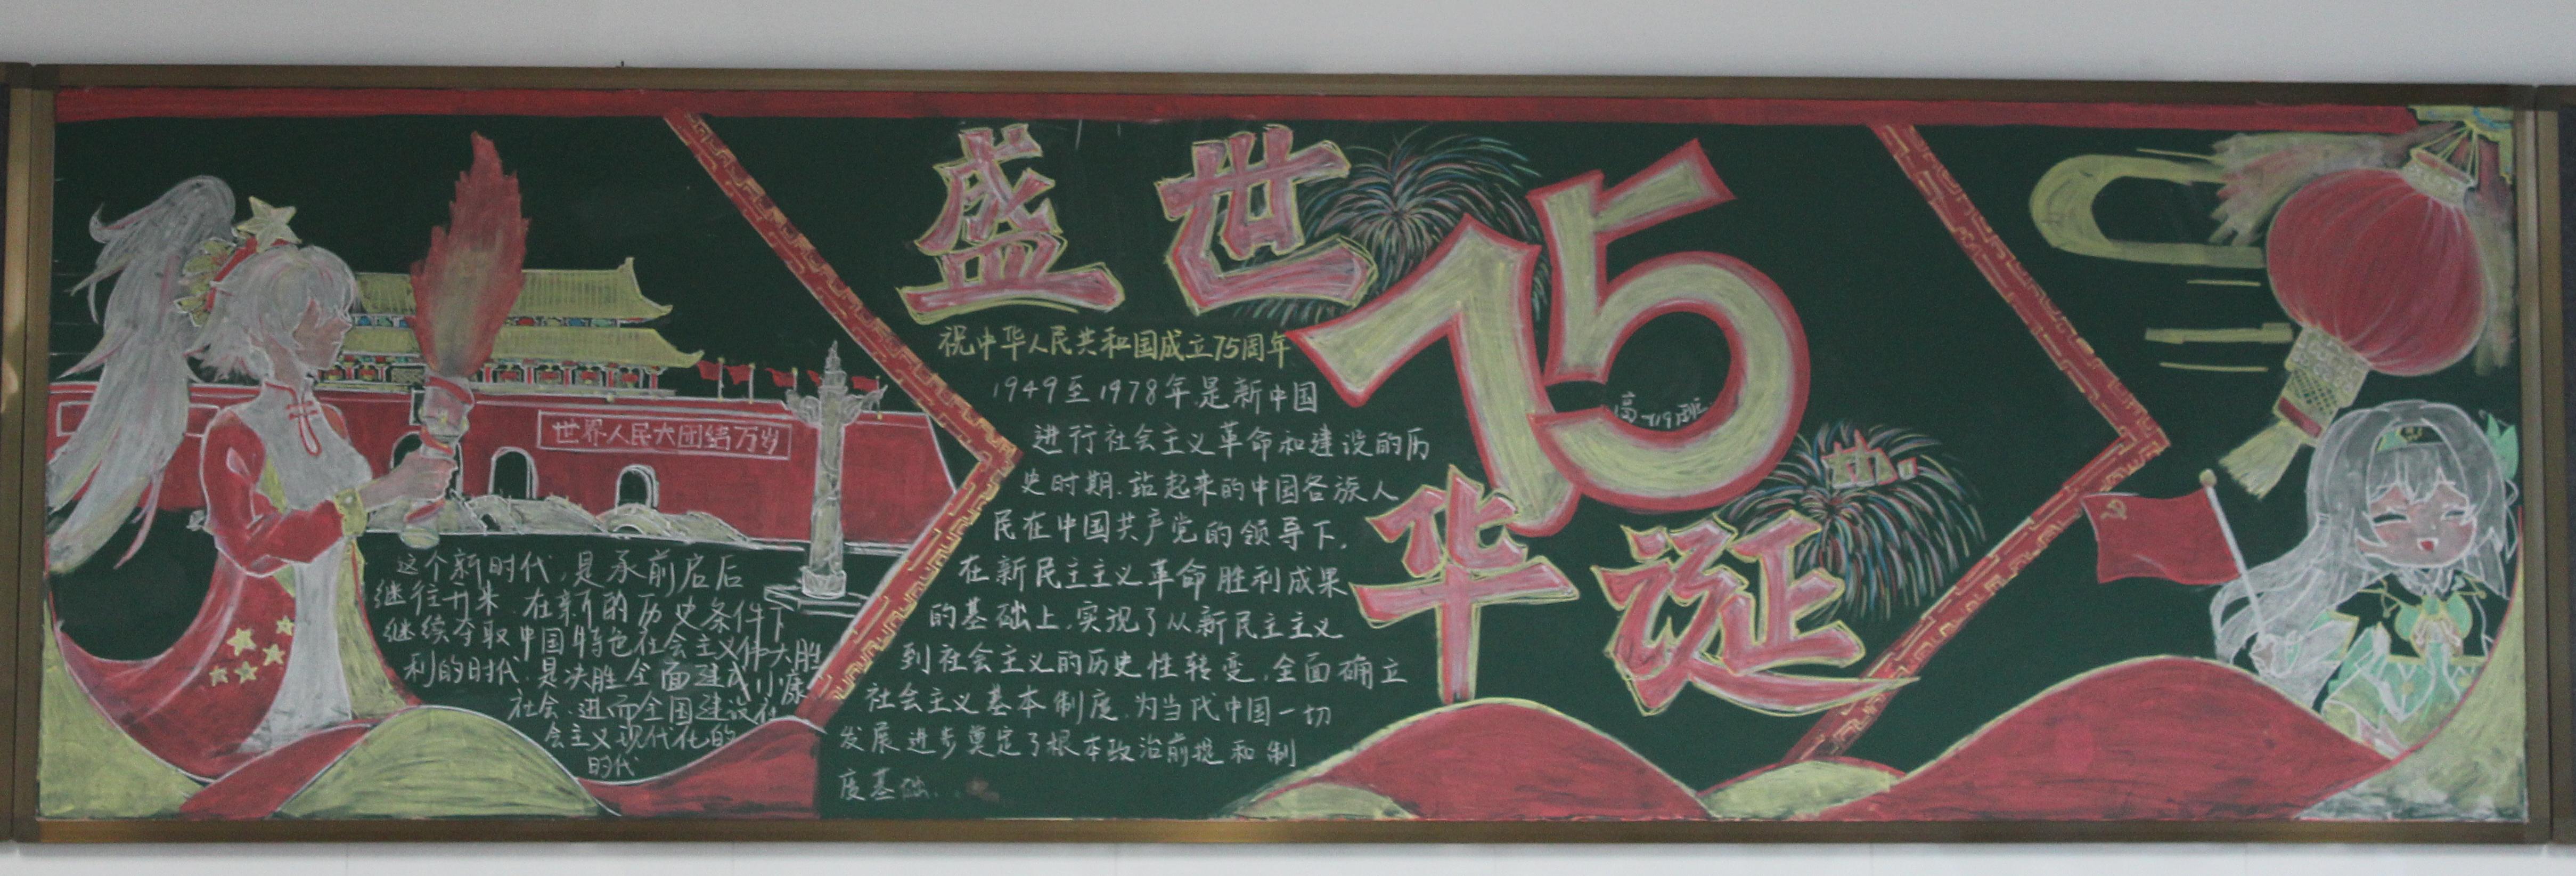 盛世
75
华诞
祝中华人民共和国成立75周年
1949至1978年,是新中国
进行社会主义革命和建设的历
史时期.站起来的中国各族人
民在中国共产党的领导下,
在新民主主义革命胜利成果
的基础上,实现了从新民主主义
到社会主义的历史性转变,全面确立
社会主义基本制度,为当代中国一切
发展进步奠定了根本政治前提和制
度基础.
世界人民大团结万岁
这个新时代,是承前启后
继往开来.在新的历史条件下
继续夺取中国特色社会主义伟大胜
利的时代,是决胜全面建成小康
社会.进而全国建设社
会主义现代化的
时代